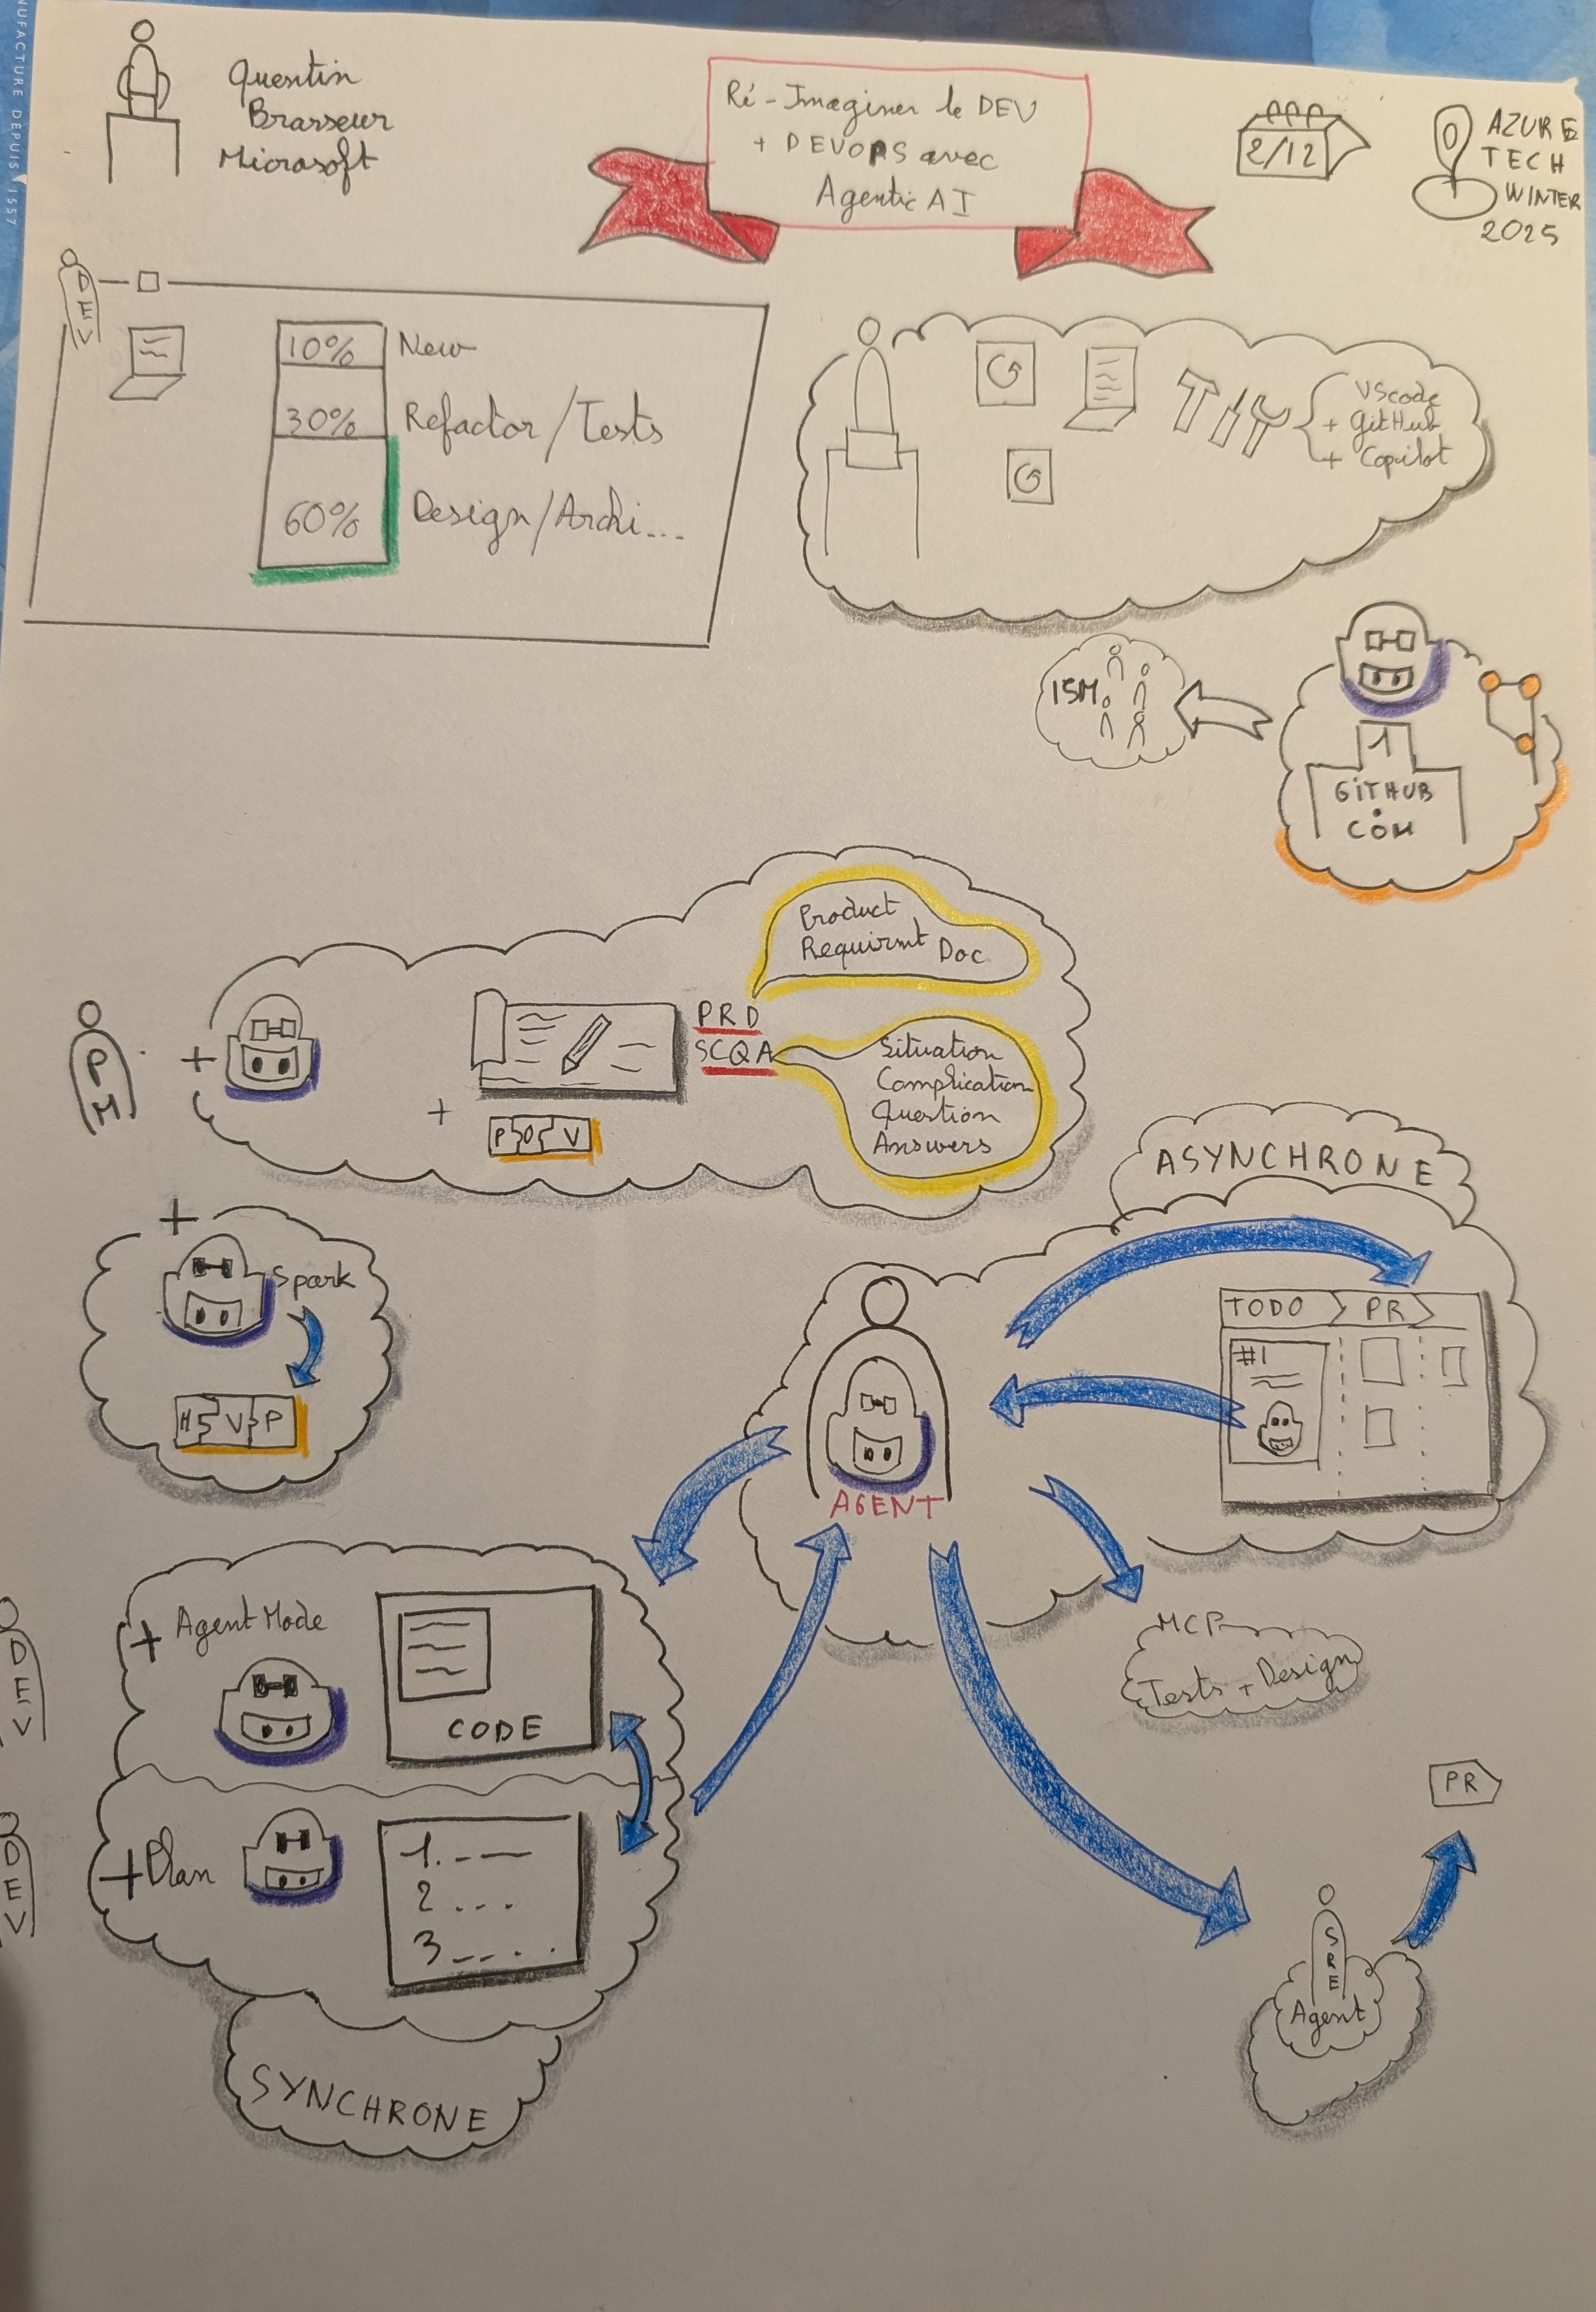 NUFACTURE DEPUIS 1557
Quentin
Brasseur
Microsoft
Ré-Imaginer le DEV
+ DEVOPS avec
Agentic AI
2/12
AZURE
TECH
WINTER
2025
DEV
10% New
30% Refactor/Tests
60% Design/Archi...
VScode
+ GitHub
+ Copilot
15M
1
GITHUB
.
COM
Product
Requirmt Doc
PM
+
PRD
SCQA
Situation
Complication
Question
Answers
+
P O V
+
Spark
M V P
ASYNCHRONE
TODO PR
#1
AGENT
MCP
Tests + Design
DEV
+ Agent Mode
CODE
DEV
+ Plan
1. - —
2 ...
3 — ...
SYNCHRONE
PR
SRE
Agent